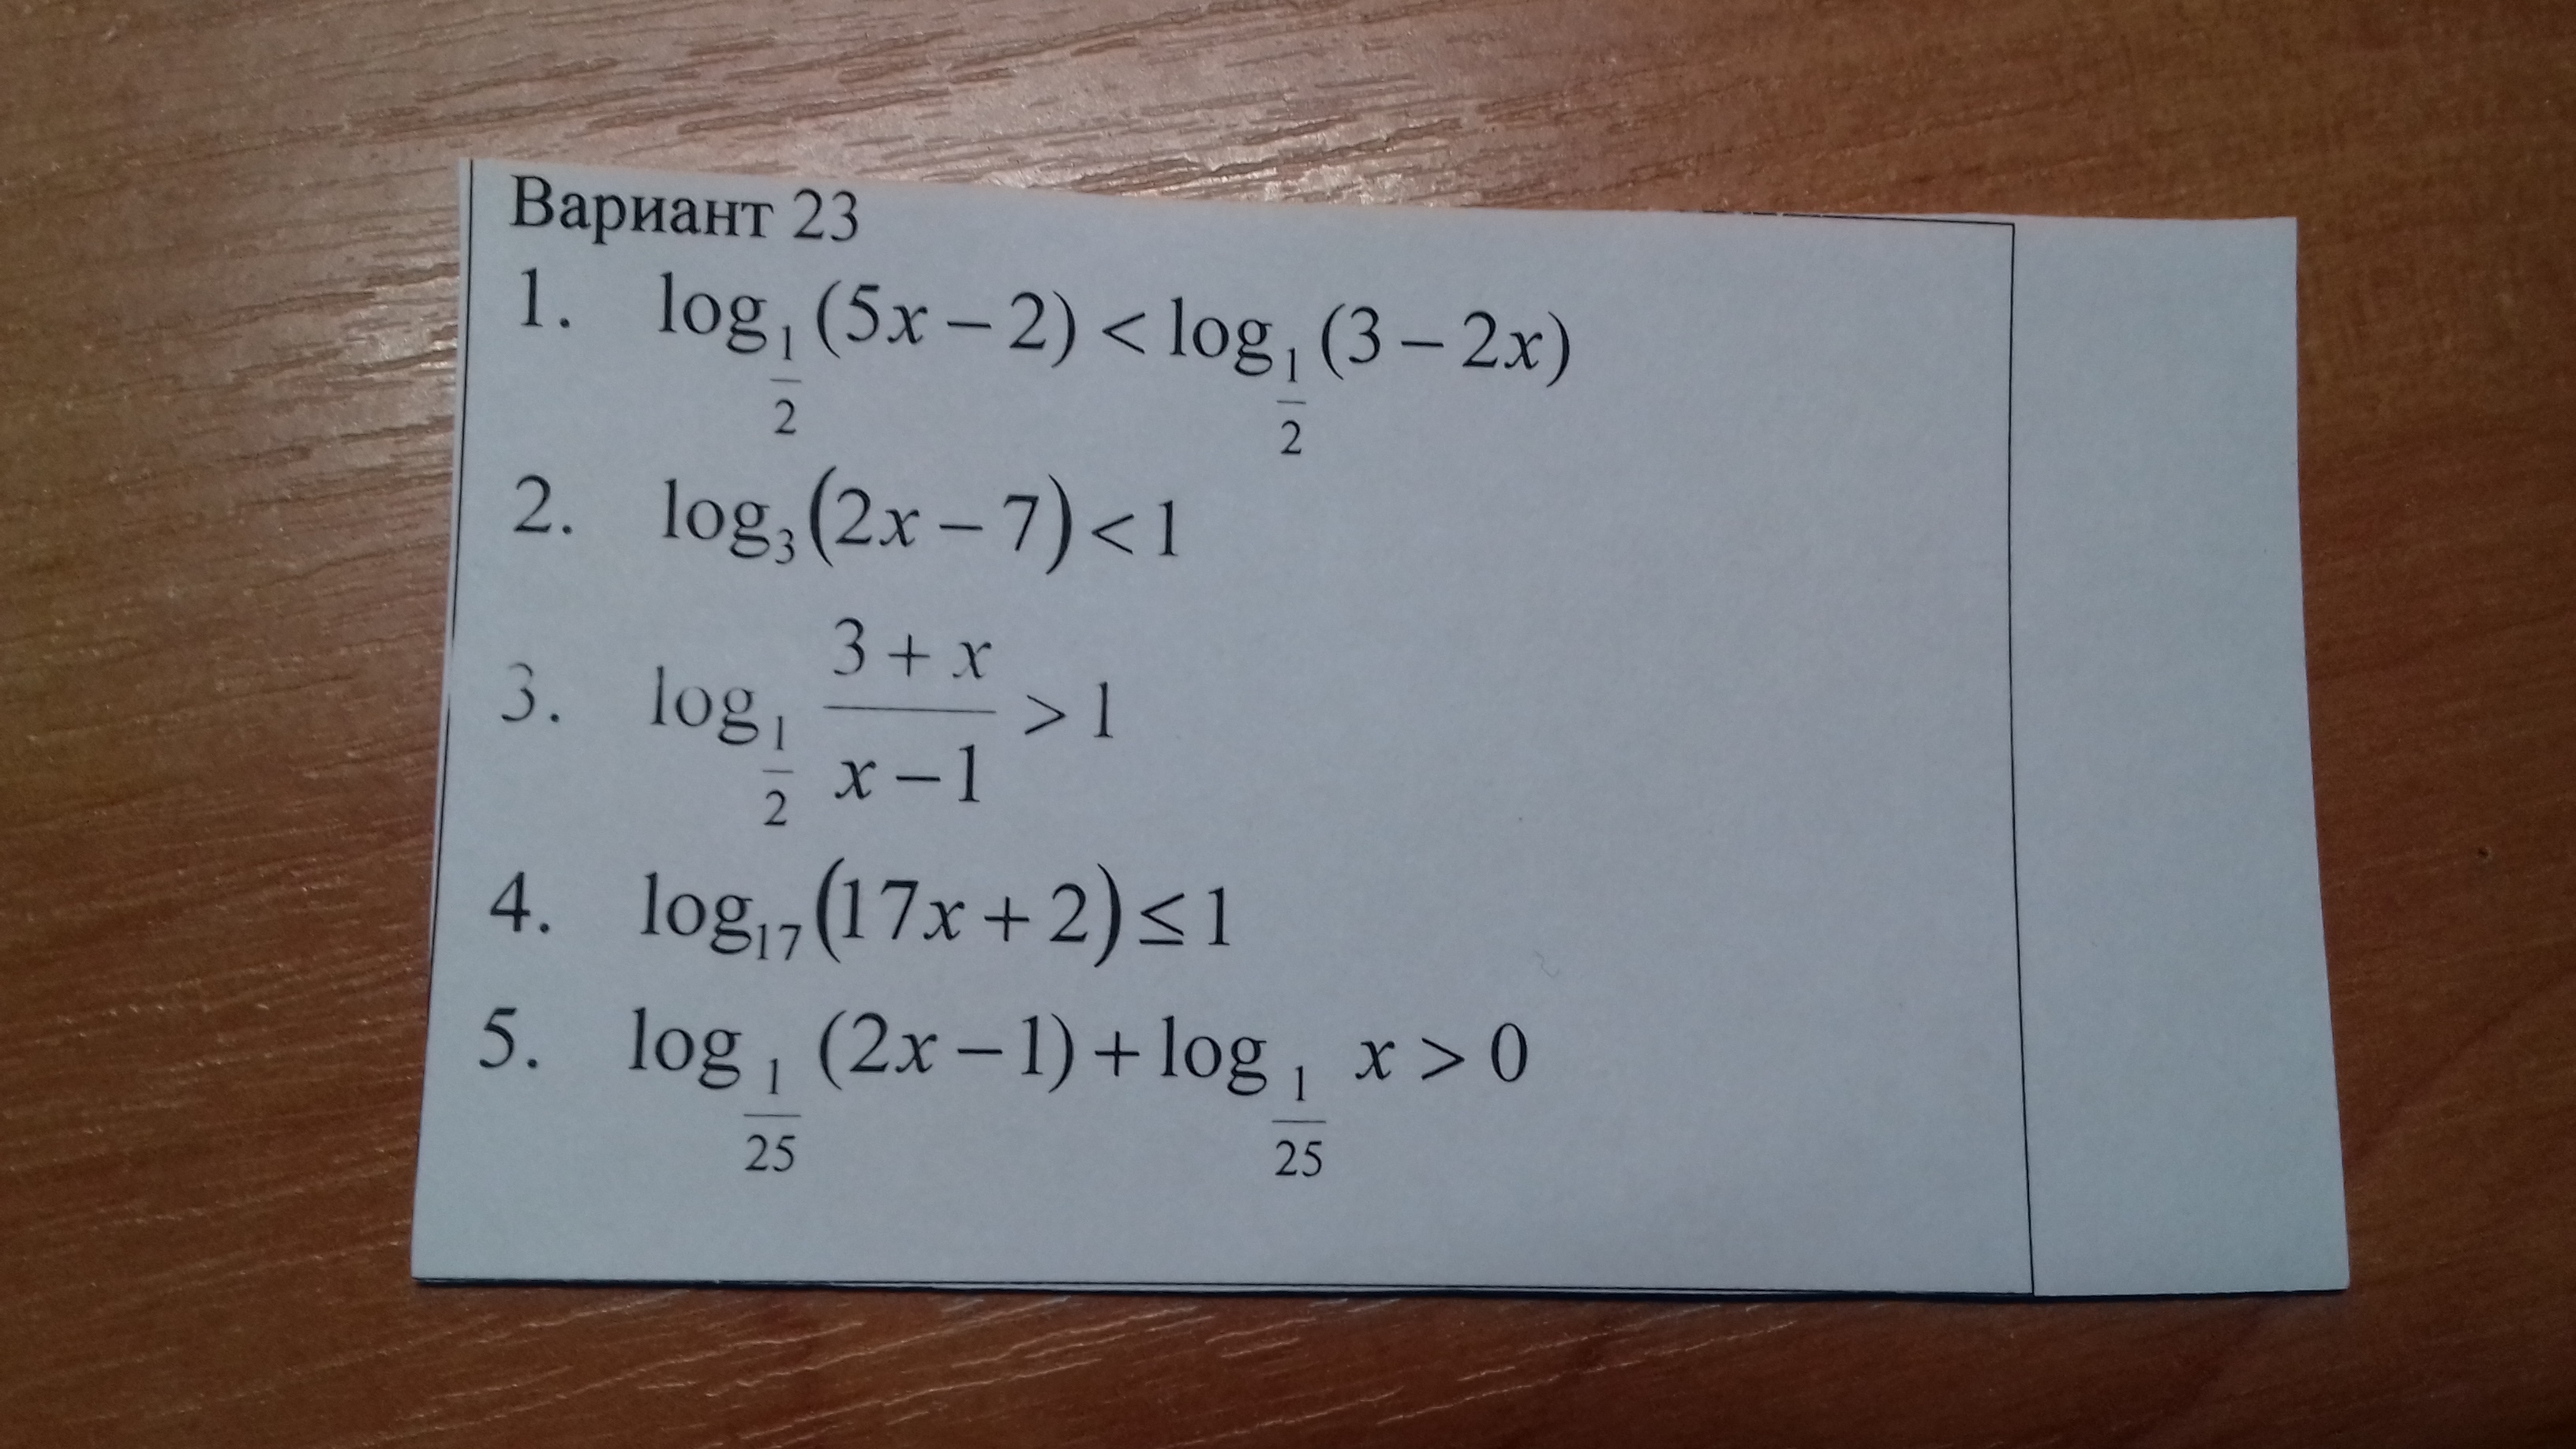 Вариант 23
1. log_{1/2}(5x − 2) < log_{1/2}(3 − 2x)
2. log_3(2x − 7) < 1
3. log_{1/2} (3 + x)/(x − 1) > 1
4. log_{17}(17x + 2) ≤ 1
5. log_{1/25}(2x − 1) + log_{1/25} x > 0